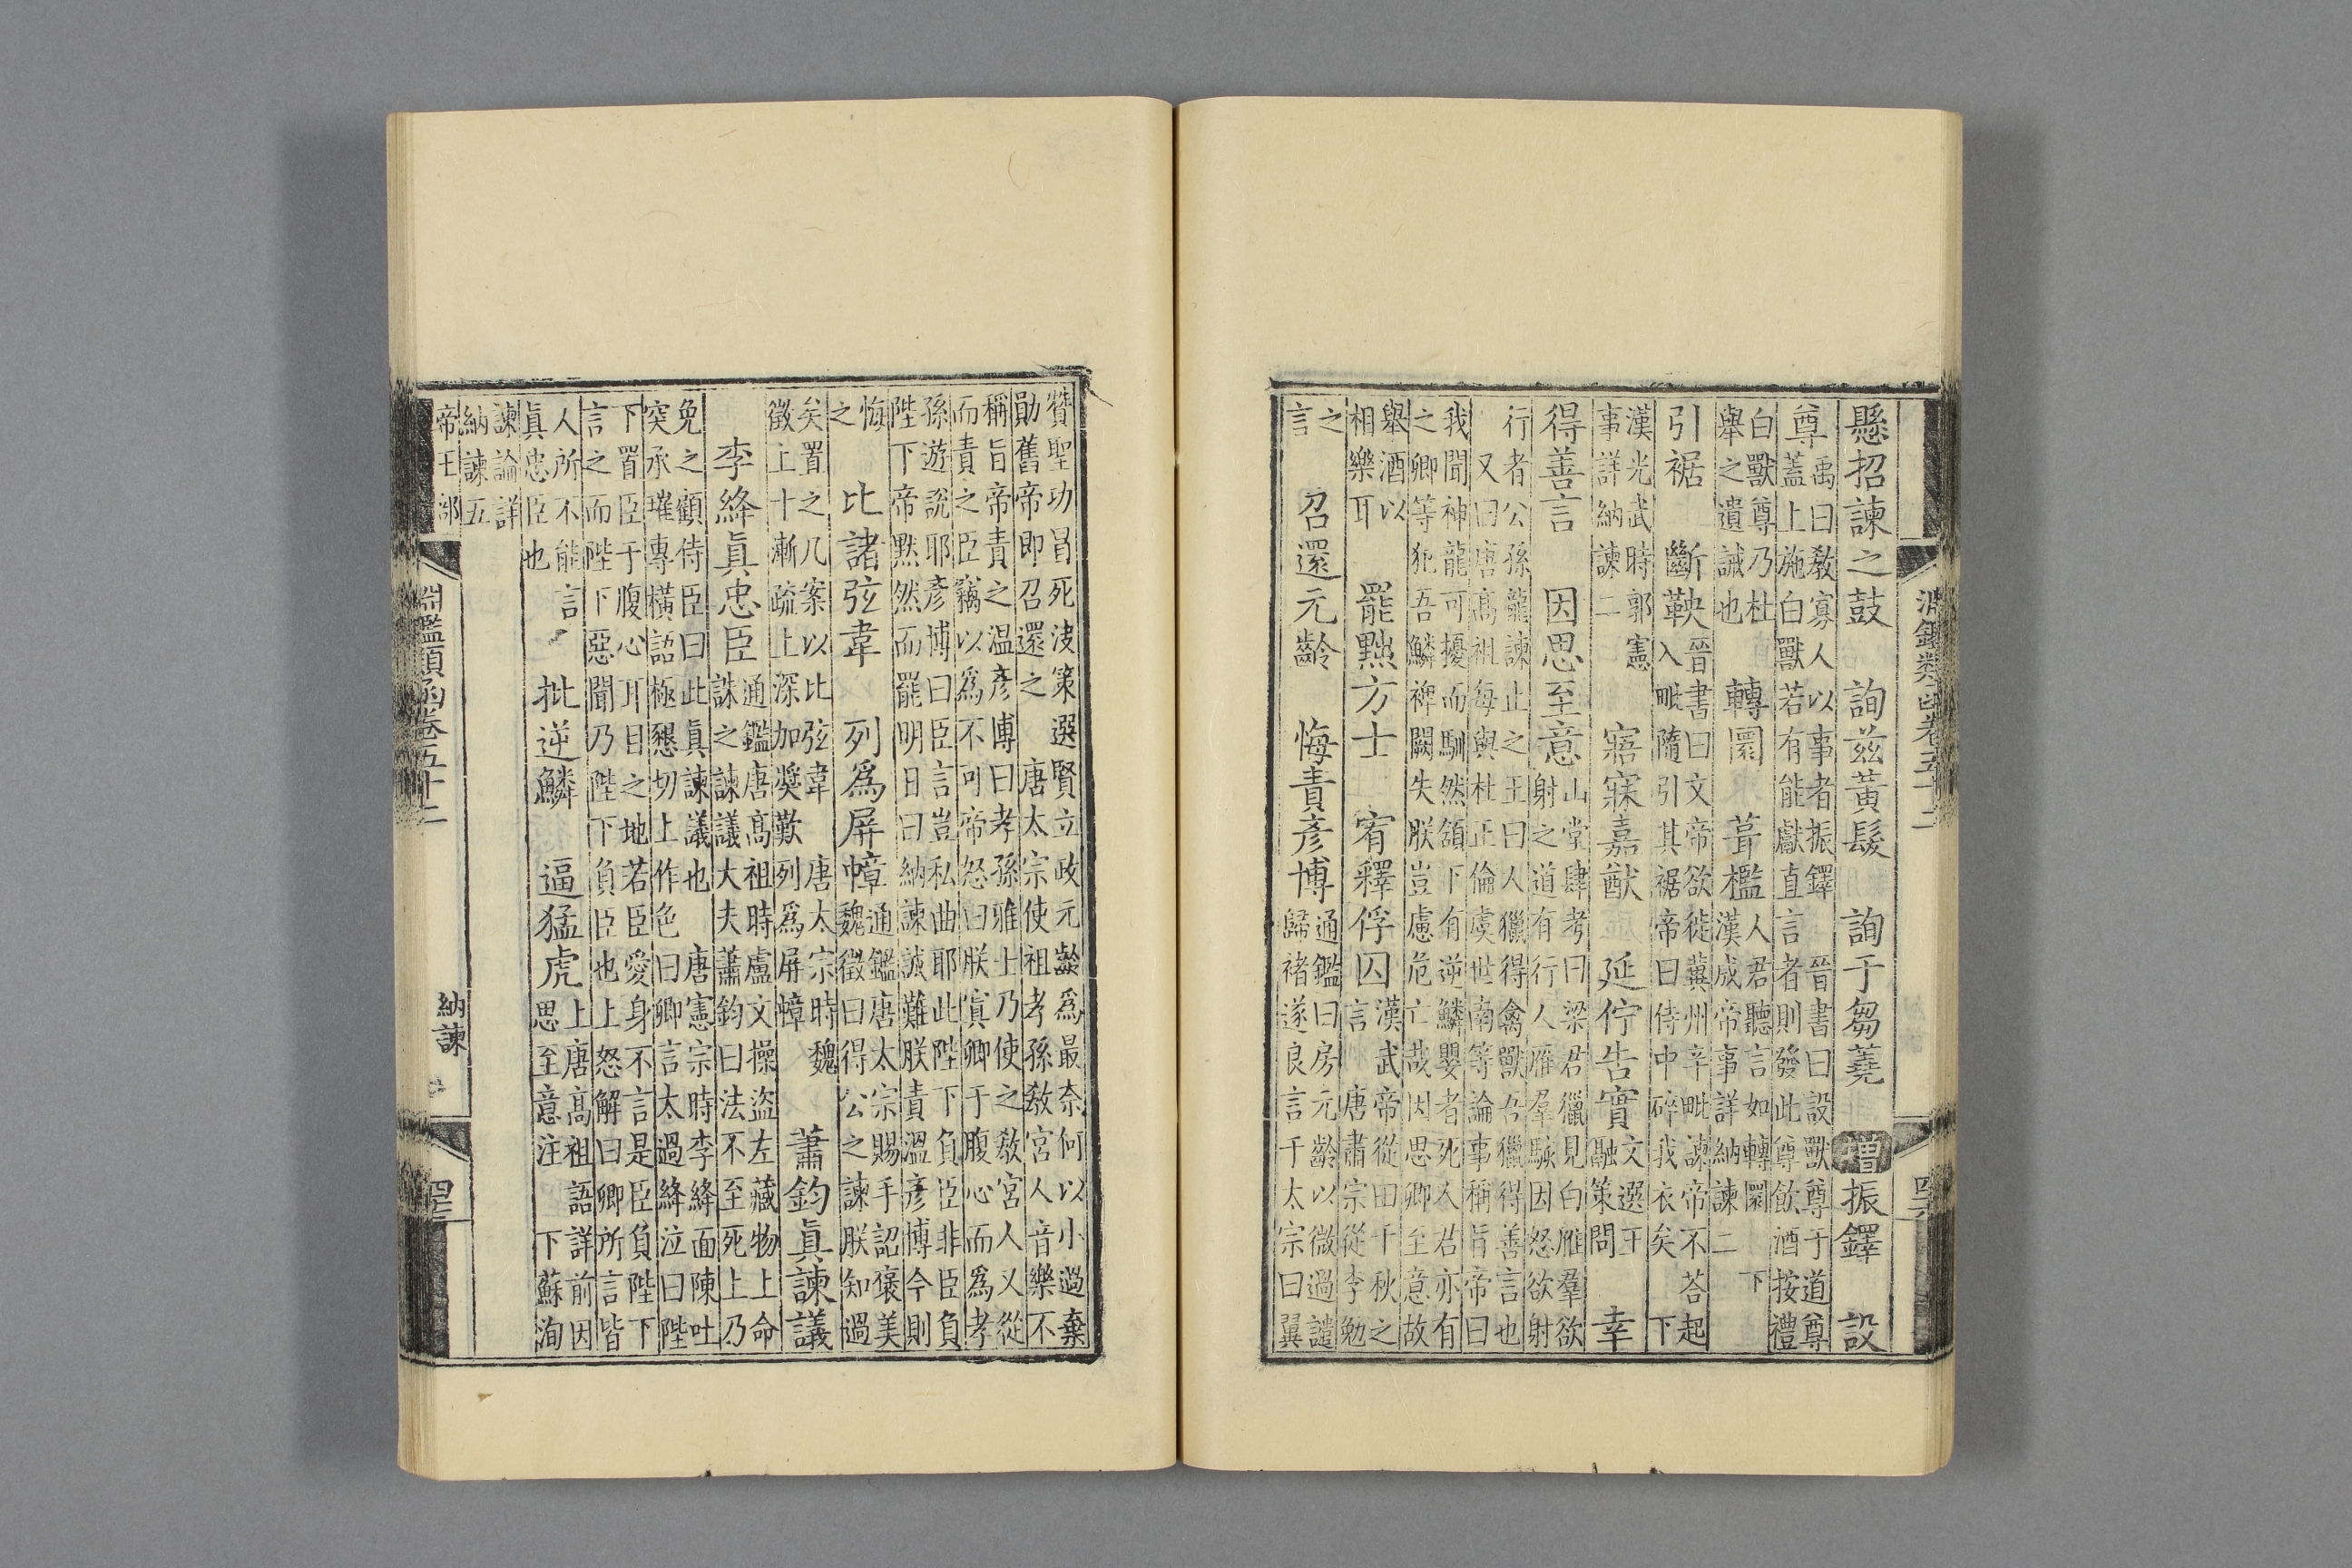 淵鑑類函卷五十二
懸招諫之鼓 詢茲黃髮 詢于芻蕘 增 振鐸 設
尊 禹曰敎寡人以事者振鐸 晉書曰設獸尊于道尊
蓋上施白獸若有能獻直言者則發此尊飲酒按禮
白獸尊乃杜
舉之遺誡也 轉圜 葺檻 人君聽言如轉圜 下
漢成帝事詳納諫二
引裾 斷鞅 晉書曰文帝欲徙冀州辛毗諫帝不荅起
入毗隨引其裾帝曰侍中碎我衣矣 下
漢光武時郭憲
事詳納諫二 寤寐嘉猷 延佇告實 文選王
融策問 幸
得善言 因思至意 山堂肆考曰梁君獵見白雁羣欲
射之道有行人雁羣駭因怒欲射
行者公孫龍諫止之王曰人獵得禽獸吾獵得善言也
又曰唐高祖每與杜正倫虞世南等論事稱旨帝曰
我聞神龍可擾而馴然頷下有逆鱗嬰者死人君亦有
之卿等犯吾鱗裨闕失朕豈慮危亡哉因思卿至意故
舉酒以
相樂耳 罷黜方士 宥釋俘囚 漢武帝從田千秋之
言 唐肅宗從李勉
之
言 召還元齡 悔責彥博 通鑑曰房元齡以微過譴
歸褚遂良言于太宗曰翼
贊聖功冒死決策選賢立政元齡爲最奈何以小過棄
勛舊帝即召還之 唐太宗使祖孝孫敎宮人音樂不
稱旨帝責之温彥博曰孝孫雅士乃使之敎宮人又從
而責之臣竊以爲不可帝怒曰朕寘卿于腹心而爲孝
孫遊說耶彥博曰臣言豈私曲耶此陛下負臣非臣負
陛下帝默然而罷明日曰納諫誠難朕責溫彥博今則
悔
之 比諸弦韋 列爲屏幛 通鑑唐太宗賜手詔褒美
魏徵曰得公之諫朕知過
矣置之几案以比弦韋 唐太宗時魏
徵上十漸疏上深加奬歎列爲屏幛 蕭鈞眞諫議
李絳眞忠臣 通鑑唐高祖時盧文操盜左藏物上命
誅之諫議大夫蕭鈞曰法不至死上乃
免之顧侍臣曰此眞諫議也 唐憲宗時李絳面陳吐
突承璀專橫詔極懇切上作色曰卿言太過絳泣曰陛
下置臣于腹心耳目之地若臣愛身不言是臣負陛下
言之而陛下惡聞乃陛下負臣也上怒解曰卿所言皆
人所不能言
眞忠臣也 批逆鱗 逼猛虎 上唐高祖語詳前因
思至意注 下蘇洵
諫論詳
納諫五
帝王部 淵鑑類函卷五十二 納諫